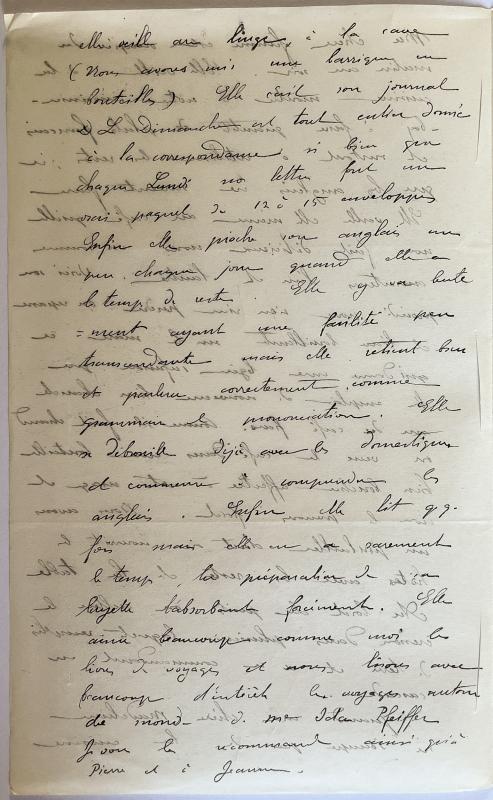 elle veille au linge, à la cave
(nous avons mis une barrique en
bouteilles) Elle écrit son journal
& le Dimanche est tout entier donné
à la correspondance si bien que
chaque Lundi nos lettres font un
vrai paquet de 12 à 15 enveloppes
Enfin elle pioche son anglais un
peu chaque jour quand elle a
le temps de reste. Elle y va lente
=ment ayant une facilité peu
transcendante mais elle retient bien
et parlera correctement comme
grammaire et prononciation. Elle
se débrouille déjà avec les domestiques
et commence à comprendre les
anglais. Enfin elle lit qq.
fois mais elle en a rarement
le temps, la préparation de sa
layette l'absorbant forcément. Elle
aime beaucoup comme moi les
livres de voyages et nous lisons avec
beaucoup d'intérêt les voyages autour
du monde de Mme Ida Pfeiffer
Je vous le recommande ainsi qu'à
Pierre et à Jeanne.